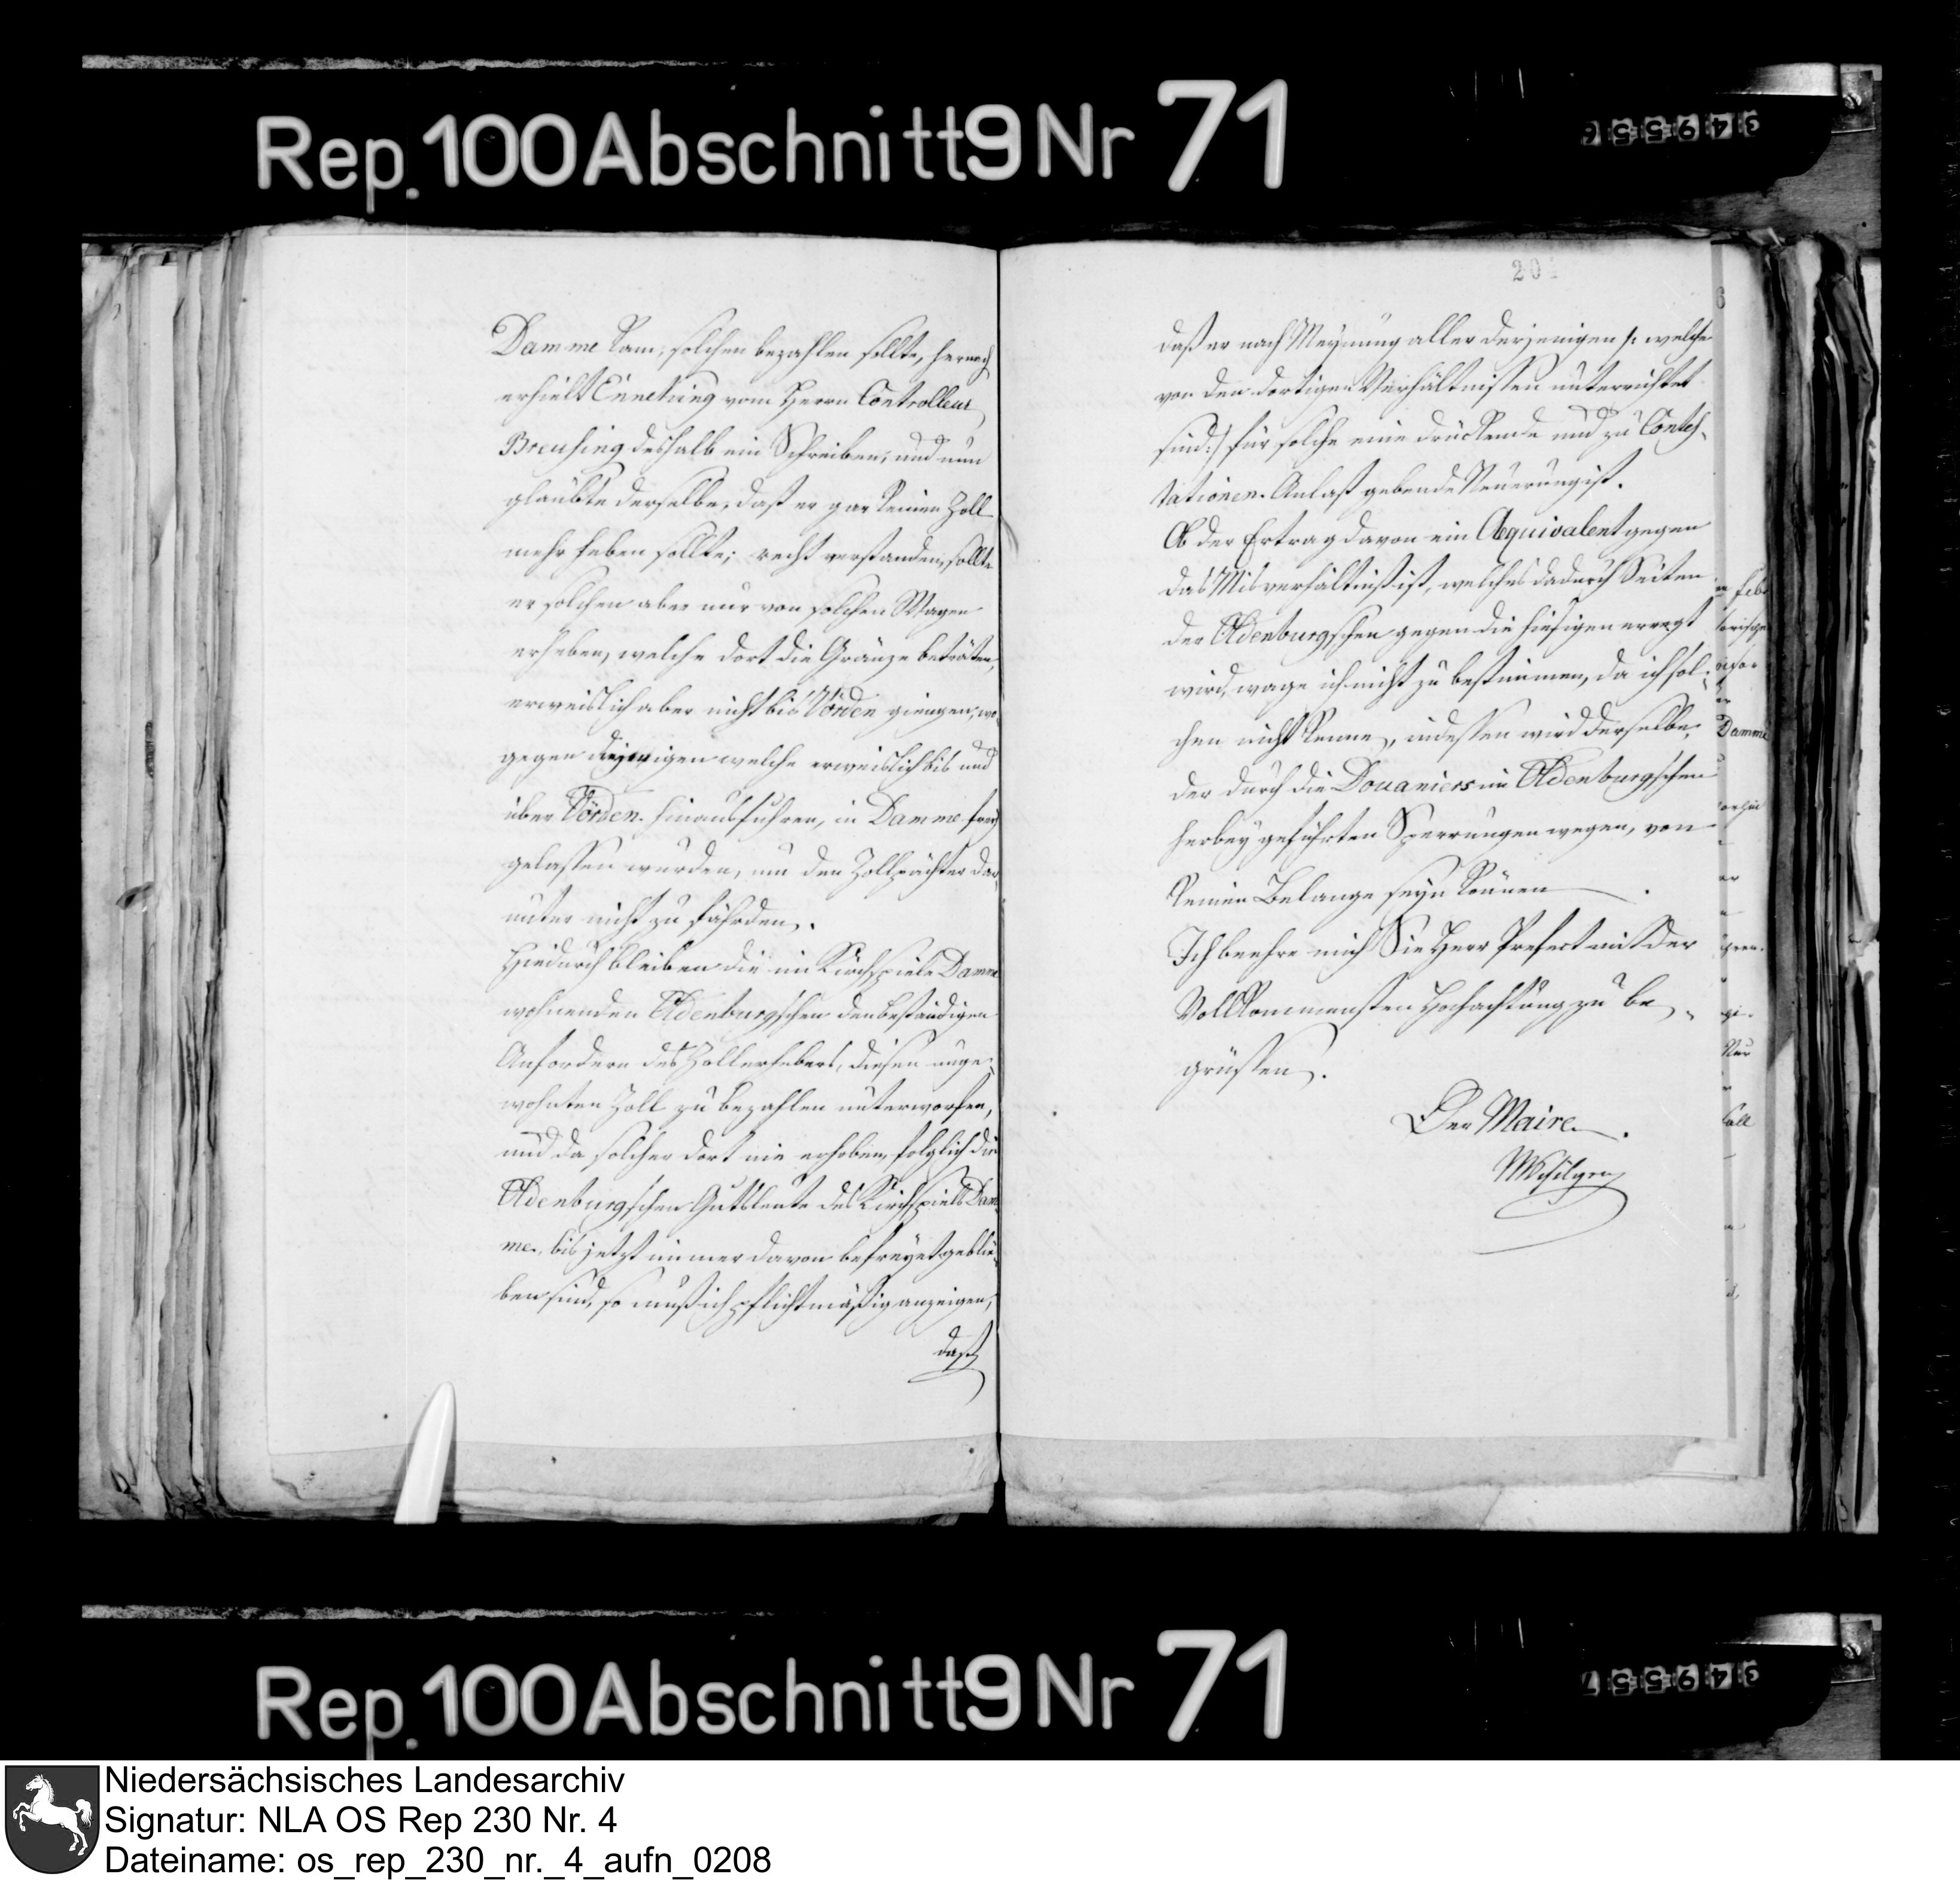 Rep. 100 Abschnitt 9 Nr 71
34955
Damme kam, solchen bezahlen sollte, hernach
erhielt Enneking vom Herrn Controlleur
Breusing deshalb ein Schreiben, und nun
glaubte derselbe, daß er gar keinen Zoll
mehr heben sollte; recht verstanden, sollte
er solchen aber nur von solchen Wagen
erheben, welche dort die Gränze beträten,
erweislich aber nicht bis Vörden giengen, wo-
gegen diejenigen welche erweislich bis und
über Vörden hinausfuhren, in Damme frey
gelassen wurden, um den Zollpächter dar-
unter nicht zu fährden.
Hiedurch bleiben die im Kirchspiele Damme
wohnenden Oldenburgschen den beständigen
Anfordern des Zollerhebers, diesen unge-
wohnten Zoll zu bezahlen unterworfen,
und da solcher dort nie erhoben, folglich die
Oldenburgschen Gutsleute des Kirchspiels Dam-
me, bis jetzt immer davon befreyet geblie-
ben sind, so muß ich pflichtmäßig anzeigen,
daß
20
daß er nach Meynung aller derjenigen /: welche
von den dortigen Verhältnissen unterrichtet
sind :/ für solche eine drückende und zu Contes-
tationen Anlaß gebende Neuerung ist.
Ob der Ertrag davon ein Aequivalent gegen
das Misverhältniß ist, welches dadurch Seiten
der Oldenburgschen gegen die hiesigen erregt
wird, wage ich nicht zu bestimmen, da ich sol-
chen nicht kenne, indessen wird derselbe,
der durch die Douaniers im Oldenburgschen
herbey geführten Sperrungen wegen, von
keinen Belange seyn können.
Ich beehre mich Sie Herr Prefect mit der
Vollkommensten Hochachtung zu be-
grüssen.
Der Maire.
Damme
Rep. 100 Abschnitt 9 Nr 71
349557
Niedersächsisches Landesarchiv
Signatur: NLA OS Rep 230 Nr. 4
Dateiname: os_rep_230_nr._4_aufn_0208